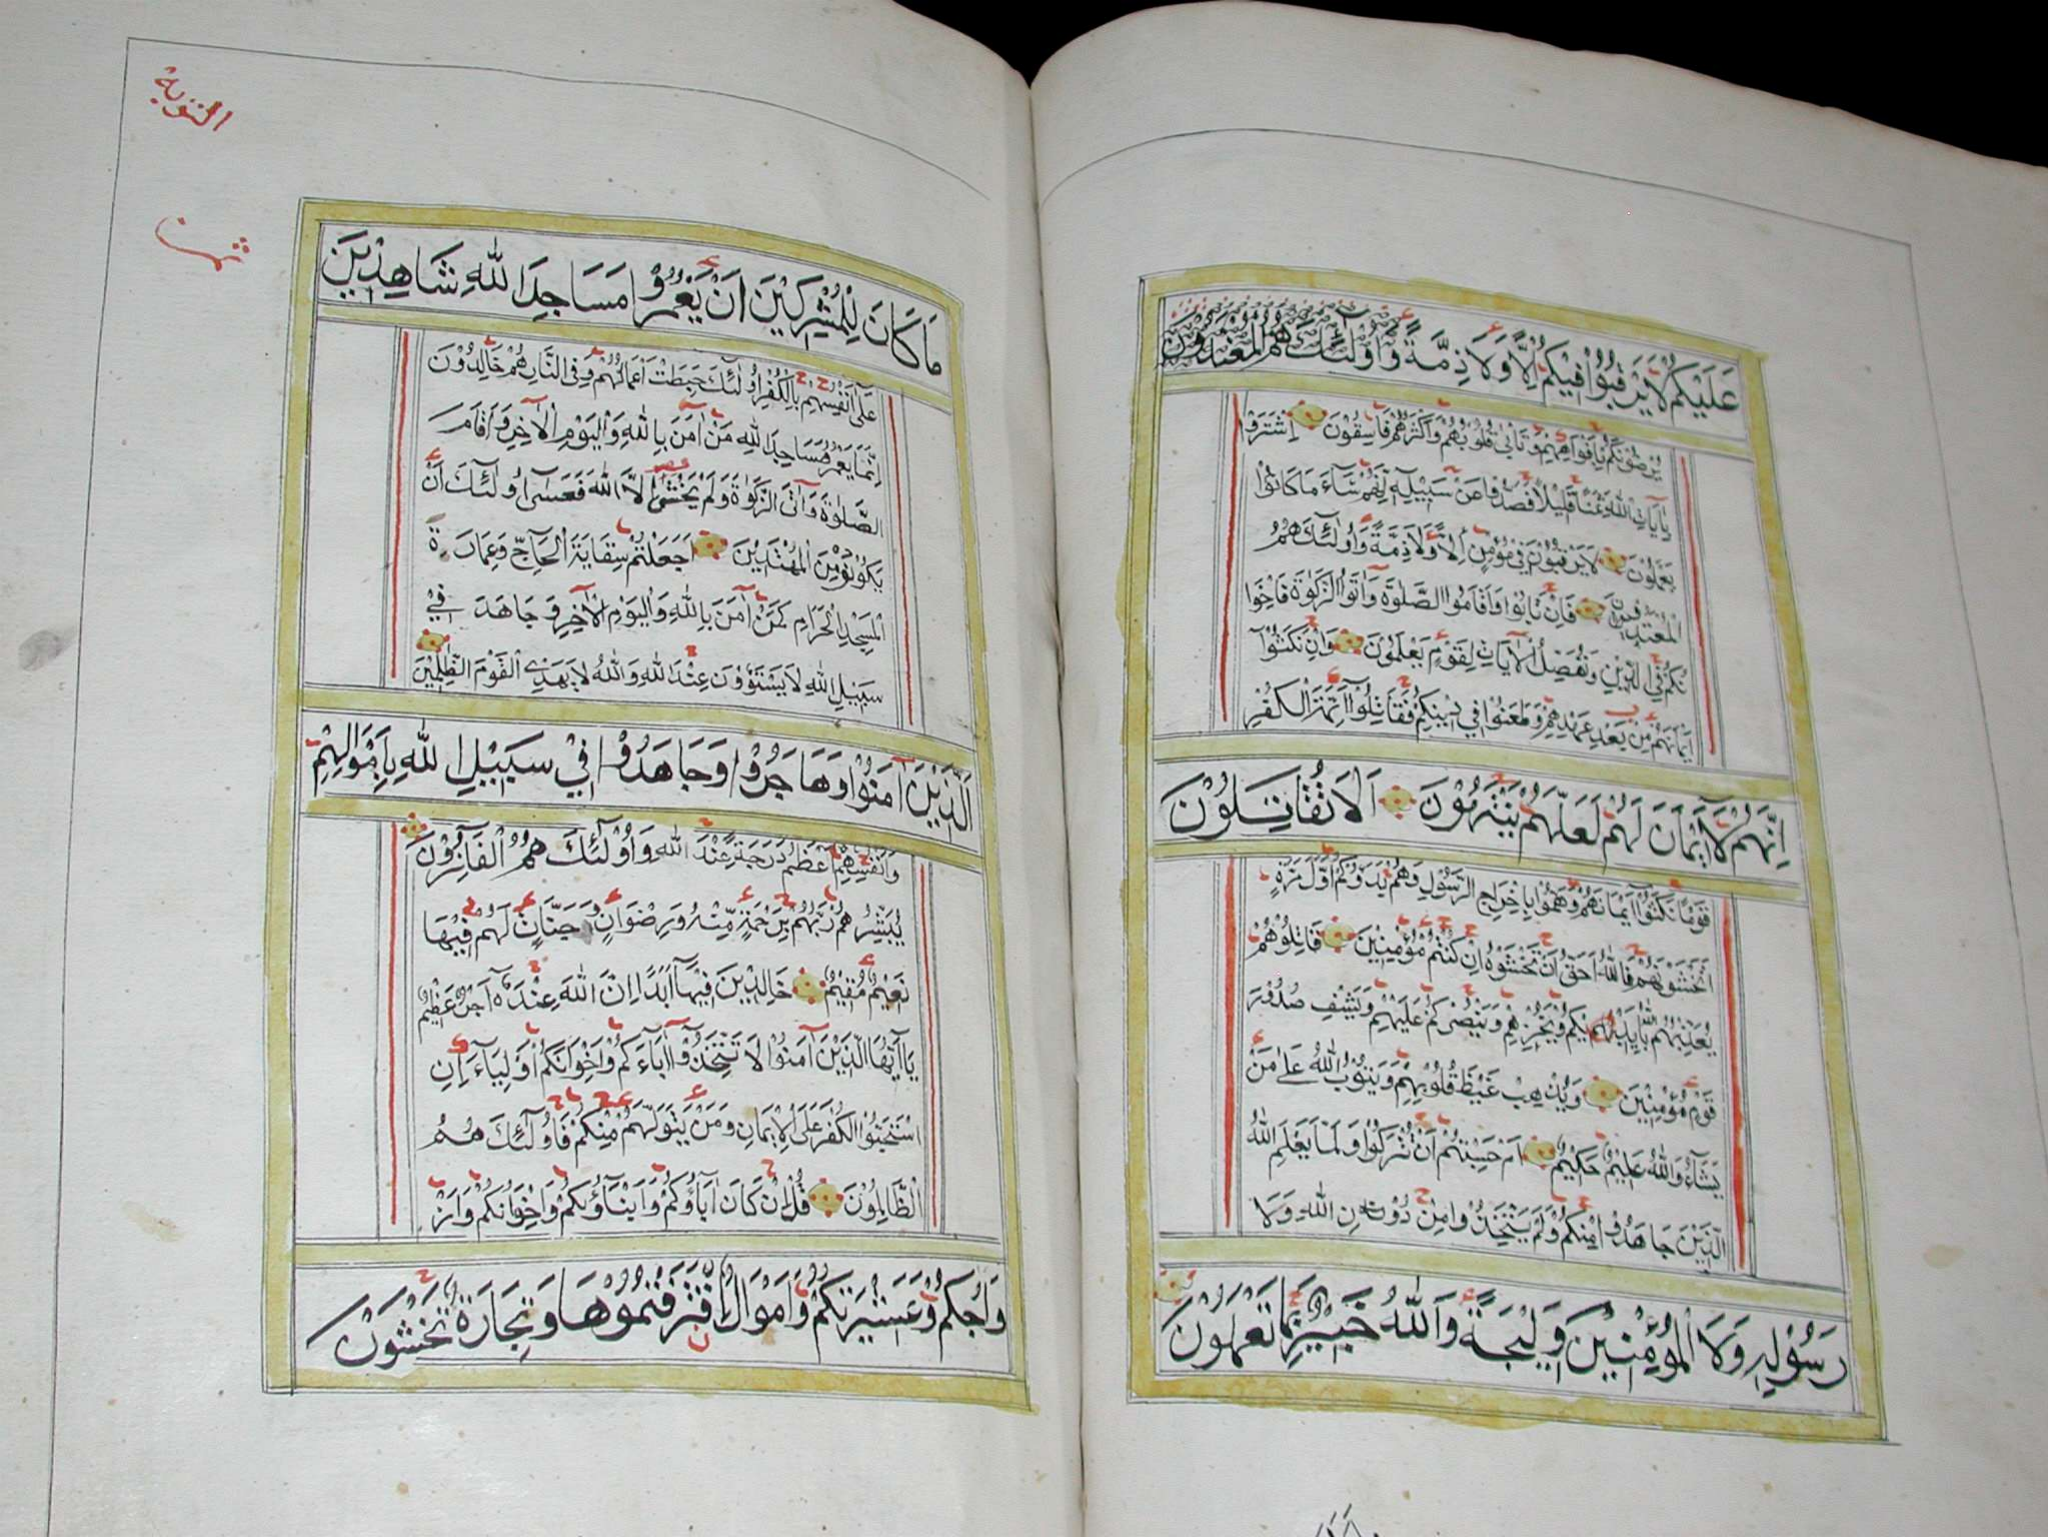 عَلَيْكُمْ لَا يَرْقُبُوْا فِيْكُمْ اِلًّا وَّلَا ذِمَّةً وَاُولٰٓئِكَ هُمُ الْمُعْتَدُوْنَ
يُرْضُوْنَكُمْ بِاَفْوَاهِهِمْ وَتَاْبٰى قُلُوْبُهُمْ وَاَكْثَرُهُمْ فَاسِقُوْنَ اِشْتَرَوْا
بِاٰيَاتِ اللّٰهِ ثَمَنًا قَلِيْلًا فَصَدُّوْا عَنْ سَبِيْلِهٖ اِنَّهُمْ سَآءَ مَا كَانُوْا
يَعْمَلُوْنَ لَا يَرْقُبُوْنَ فِيْ مُؤْمِنٍ اِلًّا وَّلَا ذِمَّةً وَاُولٰٓئِكَ هُمُ
الْمُعْتَدُوْنَ فَاِنْ تَابُوْا وَاَقَامُوا الصَّلٰوةَ وَاٰتَوُا الزَّكٰوةَ فَاِخْوَا
نُكُمْ فِي الدِّيْنِ وَنُفَصِّلُ الْاٰيَاتِ لِقَوْمٍ يَعْلَمُوْنَ وَاِنْ نَكَثُوْٓا
اَيْمَانَهُمْ مِنْ بَعْدِ عَهْدِهِمْ وَطَعَنُوْا فِيْ دِيْنِكُمْ فَقَاتِلُوْٓا اَئِمَّةَ الْكُفْرِ
اِنَّهُمْ لَآ اَيْمَانَ لَهُمْ لَعَلَّهُمْ يَنْتَهُوْنَ اَلَا تُقَاتِلُوْنَ
قَوْمًا نَكَثُوْٓا اَيْمَانَهُمْ وَهَمُّوْا بِاِخْرَاجِ الرَّسُوْلِ وَهُمْ بَدَؤُكُمْ اَوَّلَ مَرَّةٍ
اَتَخْشَوْنَهُمْ فَاللّٰهُ اَحَقُّ اَنْ تَخْشَوْهُ اِنْ كُنْتُمْ مُؤْمِنِيْنَ قَاتِلُوْهُمْ
يُعَذِّبْهُمُ اللّٰهُ بِاَيْدِيْكُمْ وَيُخْزِهِمْ وَيَنْصُرْكُمْ عَلَيْهِمْ وَيَشْفِ صُدُوْرَ
قَوْمٍ مُؤْمِنِيْنَ وَيُذْهِبْ غَيْظَ قُلُوْبِهِمْ وَيَتُوْبُ اللّٰهُ عَلٰى مَنْ
يَشَآءُ وَاللّٰهُ عَلِيْمٌ حَكِيْمٌ اَمْ حَسِبْتُمْ اَنْ تُتْرَكُوْا وَلَمَّا يَعْلَمِ اللّٰهُ
الَّذِيْنَ جَاهَدُوْا مِنْكُمْ وَلَمْ يَتَّخِذُوْا مِنْ دُوْنِ اللّٰهِ وَلَا
رَسُوْلِهٖ وَلَا الْمُؤْمِنِيْنَ وَلِيْجَةً وَاللّٰهُ خَبِيْرٌ بِمَا تَعْمَلُوْنَ
التوبة
ثمن
مَا كَانَ لِلْمُشْرِكِيْنَ اَنْ يَعْمُرُوْا مَسَاجِدَ اللّٰهِ شَاهِدِيْنَ
عَلٰٓى اَنْفُسِهِمْ بِالْكُفْرِ اُولٰٓئِكَ حَبِطَتْ اَعْمَالُهُمْ وَفِي النَّارِ هُمْ خَالِدُوْنَ
اِنَّمَا يَعْمُرُ مَسَاجِدَ اللّٰهِ مَنْ اٰمَنَ بِاللّٰهِ وَالْيَوْمِ الْاٰخِرِ وَاَقَامَ
الصَّلٰوةَ وَاٰتَى الزَّكٰوةَ وَلَمْ يَخْشَ اِلَّا اللّٰهَ فَعَسٰٓى اُولٰٓئِكَ اَنْ
يَكُوْنُوْا مِنَ الْمُهْتَدِيْنَ اَجَعَلْتُمْ سِقَايَةَ الْحَآجِّ وَعِمَارَةَ
الْمَسْجِدِ الْحَرَامِ كَمَنْ اٰمَنَ بِاللّٰهِ وَالْيَوْمِ الْاٰخِرِ وَجَاهَدَ فِيْ
سَبِيْلِ اللّٰهِ لَا يَسْتَوٗوْنَ عِنْدَ اللّٰهِ وَاللّٰهُ لَا يَهْدِى الْقَوْمَ الظّٰلِمِيْنَ
اَلَّذِيْنَ اٰمَنُوْا وَهَاجَرُوْا وَجَاهَدُوْا فِيْ سَبِيْلِ اللّٰهِ بِاَمْوَالِهِمْ
وَاَنْفُسِهِمْ اَعْظَمُ دَرَجَةً عِنْدَ اللّٰهِ وَاُولٰٓئِكَ هُمُ الْفَآئِزُوْنَ
يُبَشِّرُهُمْ رَبُّهُمْ بِرَحْمَةٍ مِّنْهُ وَرِضْوَانٍ وَجَنَّاتٍ لَهُمْ فِيْهَا
نَعِيْمٌ مُقِيْمٌ خَالِدِيْنَ فِيْهَآ اَبَدًا اِنَّ اللّٰهَ عِنْدَهٗٓ اَجْرٌ عَظِيْمٌ
يَآ اَيُّهَا الَّذِيْنَ اٰمَنُوْا لَا تَتَّخِذُوْٓا اٰبَآءَكُمْ وَاِخْوَانَكُمْ اَوْلِيَآءَ اِنِ
اسْتَحَبُّوا الْكُفْرَ عَلَى الْاِيْمَانِ وَمَنْ يَتَوَلَّهُمْ مِنْكُمْ فَاُولٰٓئِكَ هُمُ
الظَّالِمُوْنَ قُلْ اِنْ كَانَ اٰبَآؤُكُمْ وَاَبْنَآؤُكُمْ وَاِخْوَانُكُمْ وَاَزْ
وَاجُكُمْ وَعَشِيْرَتُكُمْ وَاَمْوَالٌ اقْتَرَفْتُمُوْهَا وَتِجَارَةٌ تَخْشَوْنَ